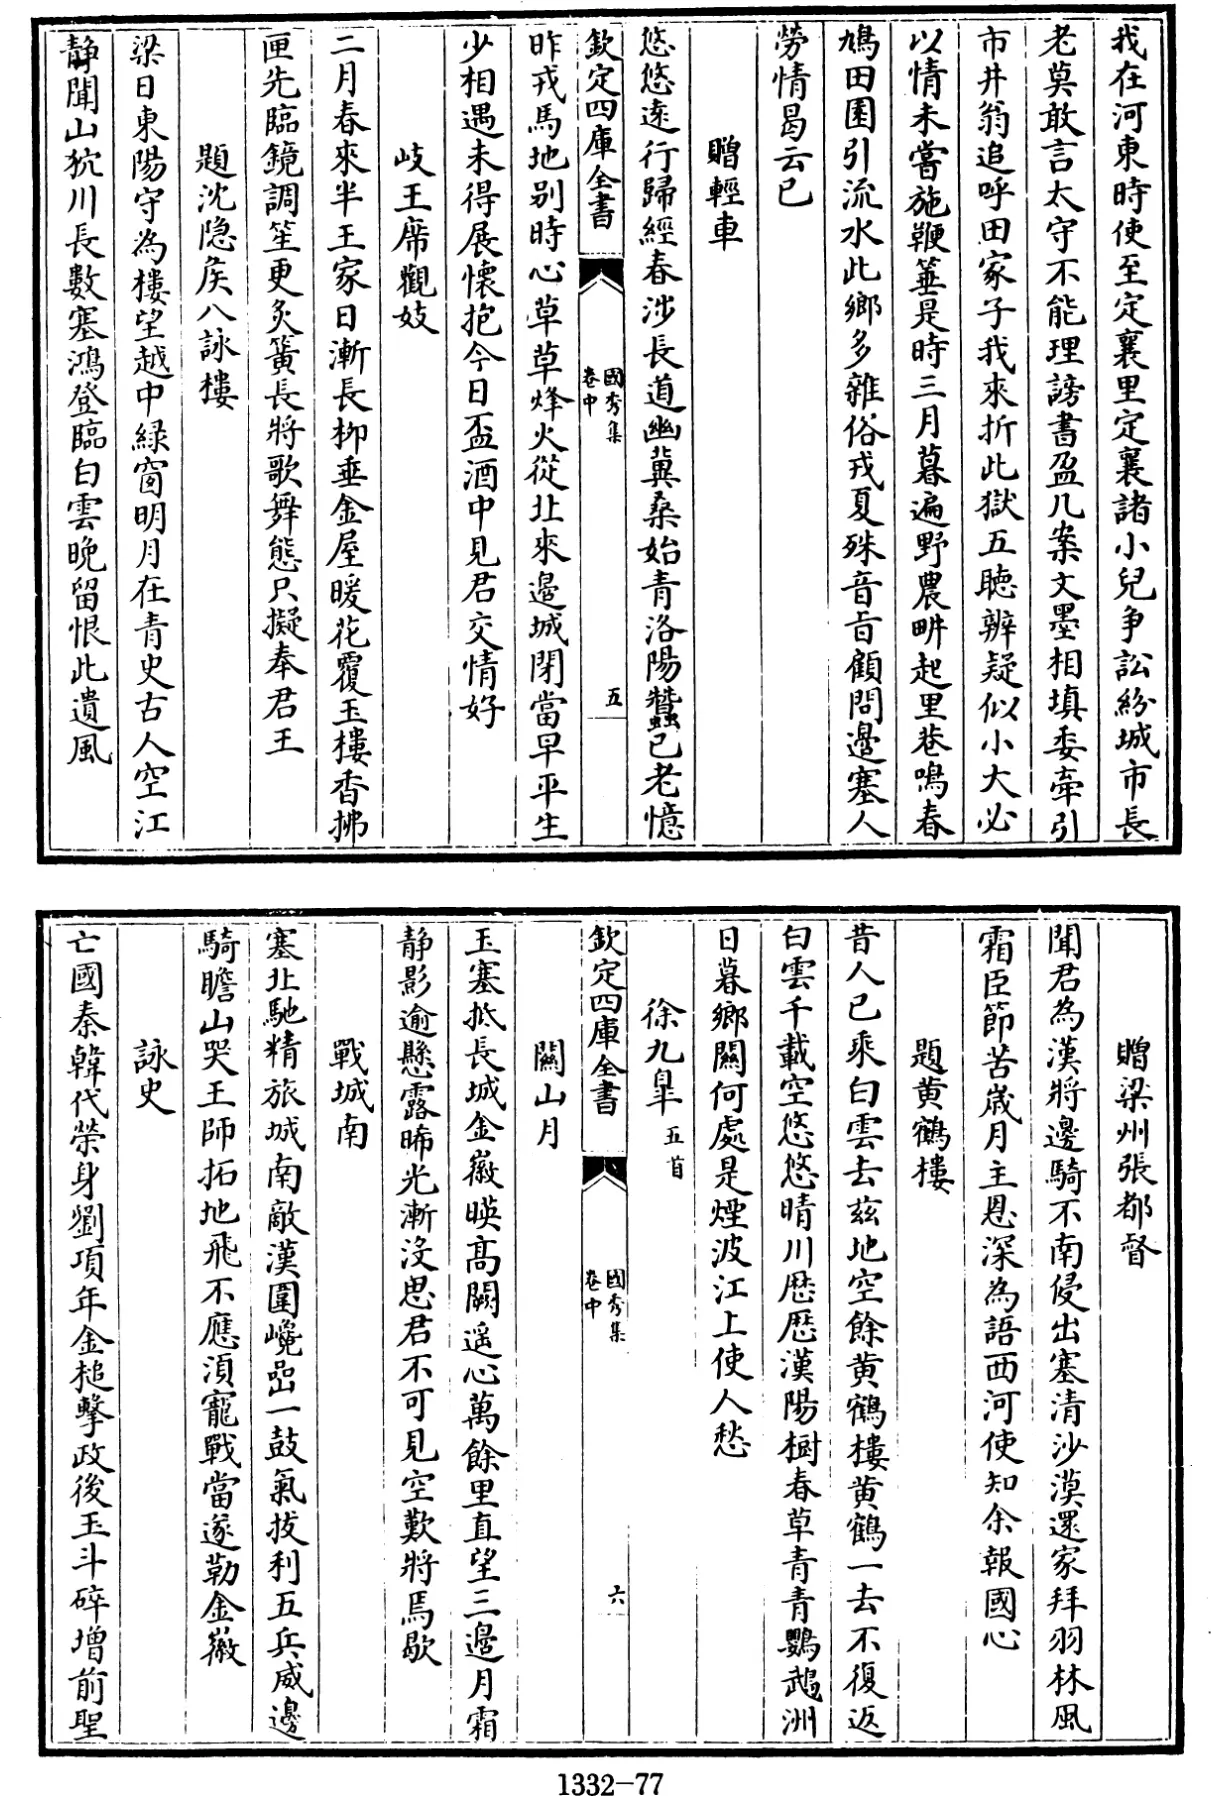 我在河東時使至定襄里定襄諸小兒爭訟紛城市長
老莫敢言太守不能理謗書盈几案文墨相填委牽引
市井翁追呼田家子我來折此獄五聽辨疑似小大必
以情未嘗施鞭箠是時三月暮遍野農畊起里巷鳴春
鳩田園引流水此鄉多雜俗戎夏殊音旨顧問邊塞人
勞情曷云已
贈輕車
悠悠遠行歸經春涉長道幽冀桑始青洛陽蠶已老憶
欽定四庫全書
國秀集
卷中
五
昨戎馬地別時心草草烽火從北來邊城閉當早平生
少相遇未得展懷抱今日盃酒中見君交情好
岐王席觀妓
二月春來半王家日漸長柳垂金屋暖花覆玉樓香拂
匣先臨鏡調笙更炙簧長將歌舞態只擬奉君王
題沈隐侯八詠樓
梁日東陽守為樓望越中緑窗明月在青史古人空江
静聞山狖川長數塞鴻登臨白雲晚留恨此遺風
贈梁州張都督
聞君為漢將邊騎不南侵出塞清沙漠還家拜羽林風
霜臣節苦嵗月主恩深為語西河使知余報國心
題黄鶴樓
昔人已乘白雲去兹地空餘黄鶴樓黄鶴一去不復返
白雲千載空悠悠晴川歴歴漢陽樹春草青青鸚鵡洲
日暮鄉關何處是煙波江上使人愁
徐九臯五首
欽定四庫全書
國秀集
卷中
六
關山月
玉塞抵長城金徽暎高闕遥心萬餘里直望三邊月霜
静影逾懸露晞光漸没思君不可見空歎將焉歇
戰城南
塞北馳精旅城南敵漢圍巉嵒一鼓氣拔利五兵威邊
騎瞻山哭王師拓地飛不應湏寵戰當遂勒金徽
詠史
亡國秦韓代榮身劉項年金槌擊政後玉斗碎增前聖
1332-77